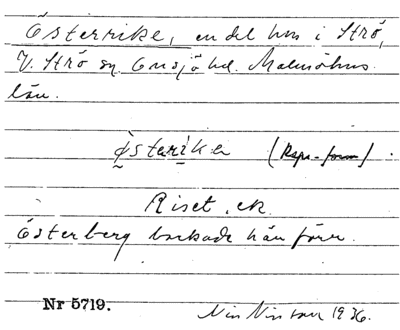 Österrike, en del hus i Strö,
V. Strö sn. Onsjö hd. Malmöhus
län.
östarike (Rspr.-form).
Riset, ek.
Österberg bockade hän förr.
Nr 5719. Nils Nilsson 1936.